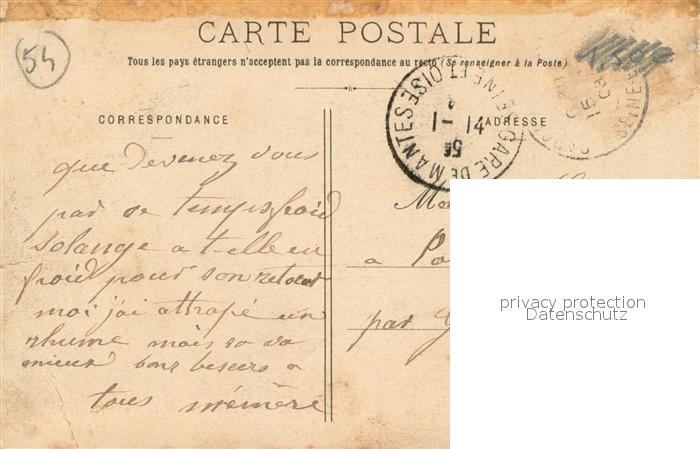 54
CARTE POSTALE
Tous les pays étrangers n'acceptent pas la correspondance au recto (Se renseigner à la Poste)
CORRESPONDANCE
ADRESSE
GARE DE MANTES SEINE ET OISE
1-14
5E
que devenez vous
par ce temps froid
Solange a t-elle eu
froid pour son retour
moi j'ai attrapé un
rhume mais sa va
mieux bons baisers a
tous mémére
a
par
privacy protection
Datenschutz